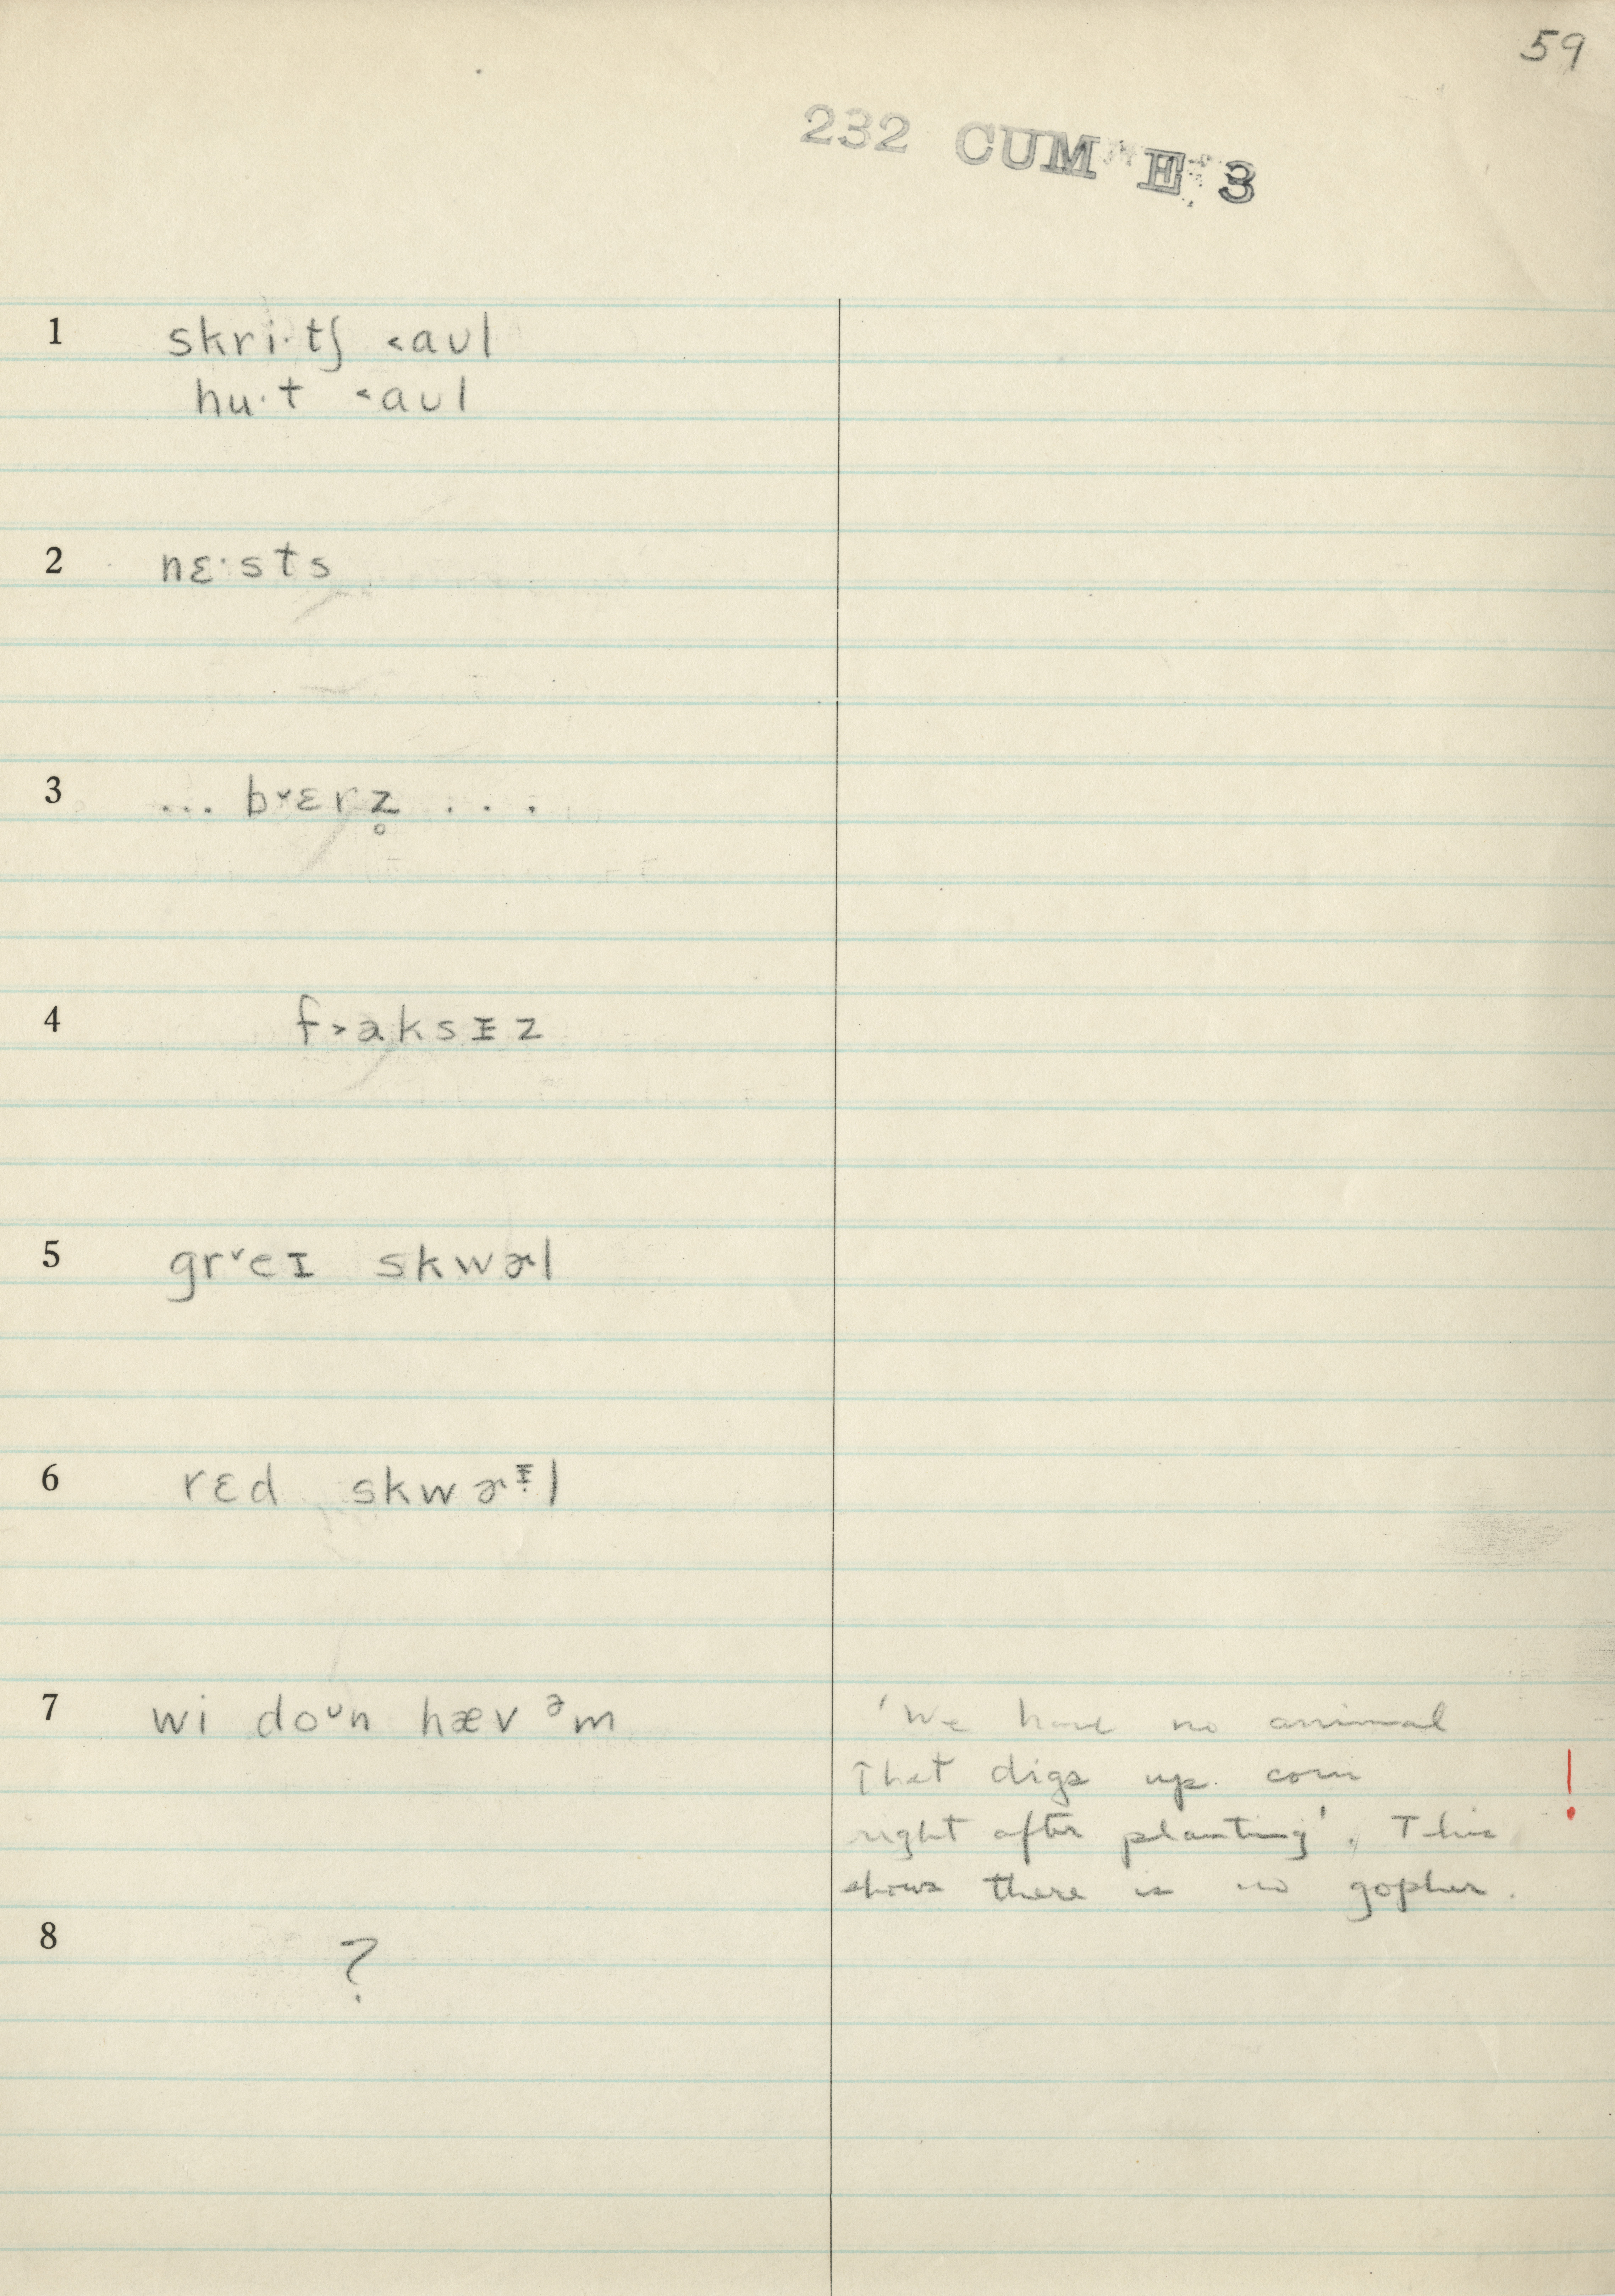 59
232 CUM E 3
1 skri·tʃ ˂aʊl
hu·t ˂aʊl
2 nɛ·sts
3 ... b˅ɛrz̥ . . .
4 f˃aksɪz
5 gr˅eɪ skwɚl
6 rɛd skwɚᶦl
7 wi doᶷn hæv ᵊm
'We have no animal
that digs up corn
!
right after planting'. This
shows there is no gopher.
8 ?